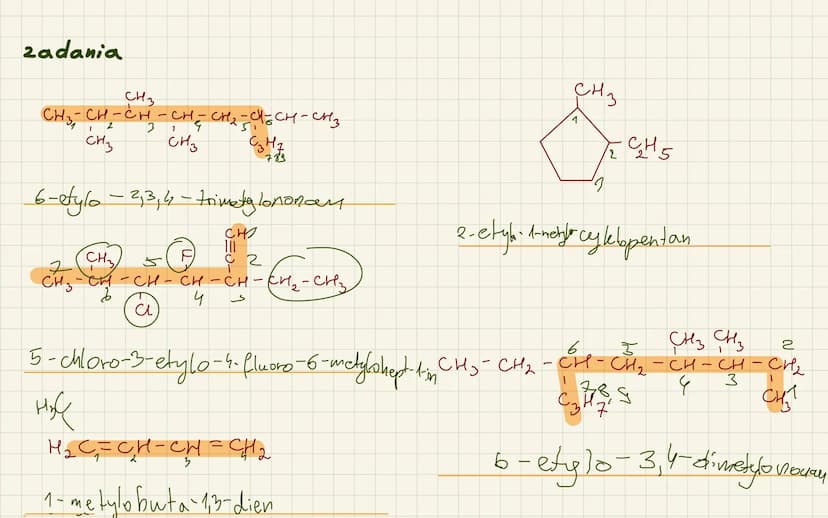 zadania
CH3
CH3 - CH - CH - CH - CH2 - CH - CH - CH3
1 2 3 4 5 6
CH3 CH3 C3H7
7 8 9
6-etylo - 2,3,4 - trimetylononan
CH3
1
2 C2H5
2-etylo-1-metylocyklopentan
CH
7 CH3 5 F C 2
CH3 - CH - CH - CH - CH - CH2 - CH3
6 4 3
Cl
5-chloro-3-etylo-4-fluoro-6-metylohept-1-in
CH3 CH3 2
6 5
CH3 - CH2 - CH - CH2 - CH - CH - CH2
4 3
7 8, 9
C3H7 CH3 1
6 - etylo - 3,4-dimetylononan
H3C
H2C = CH - CH = CH2
1 2 3 4
1-metylobuta-1,3-dien